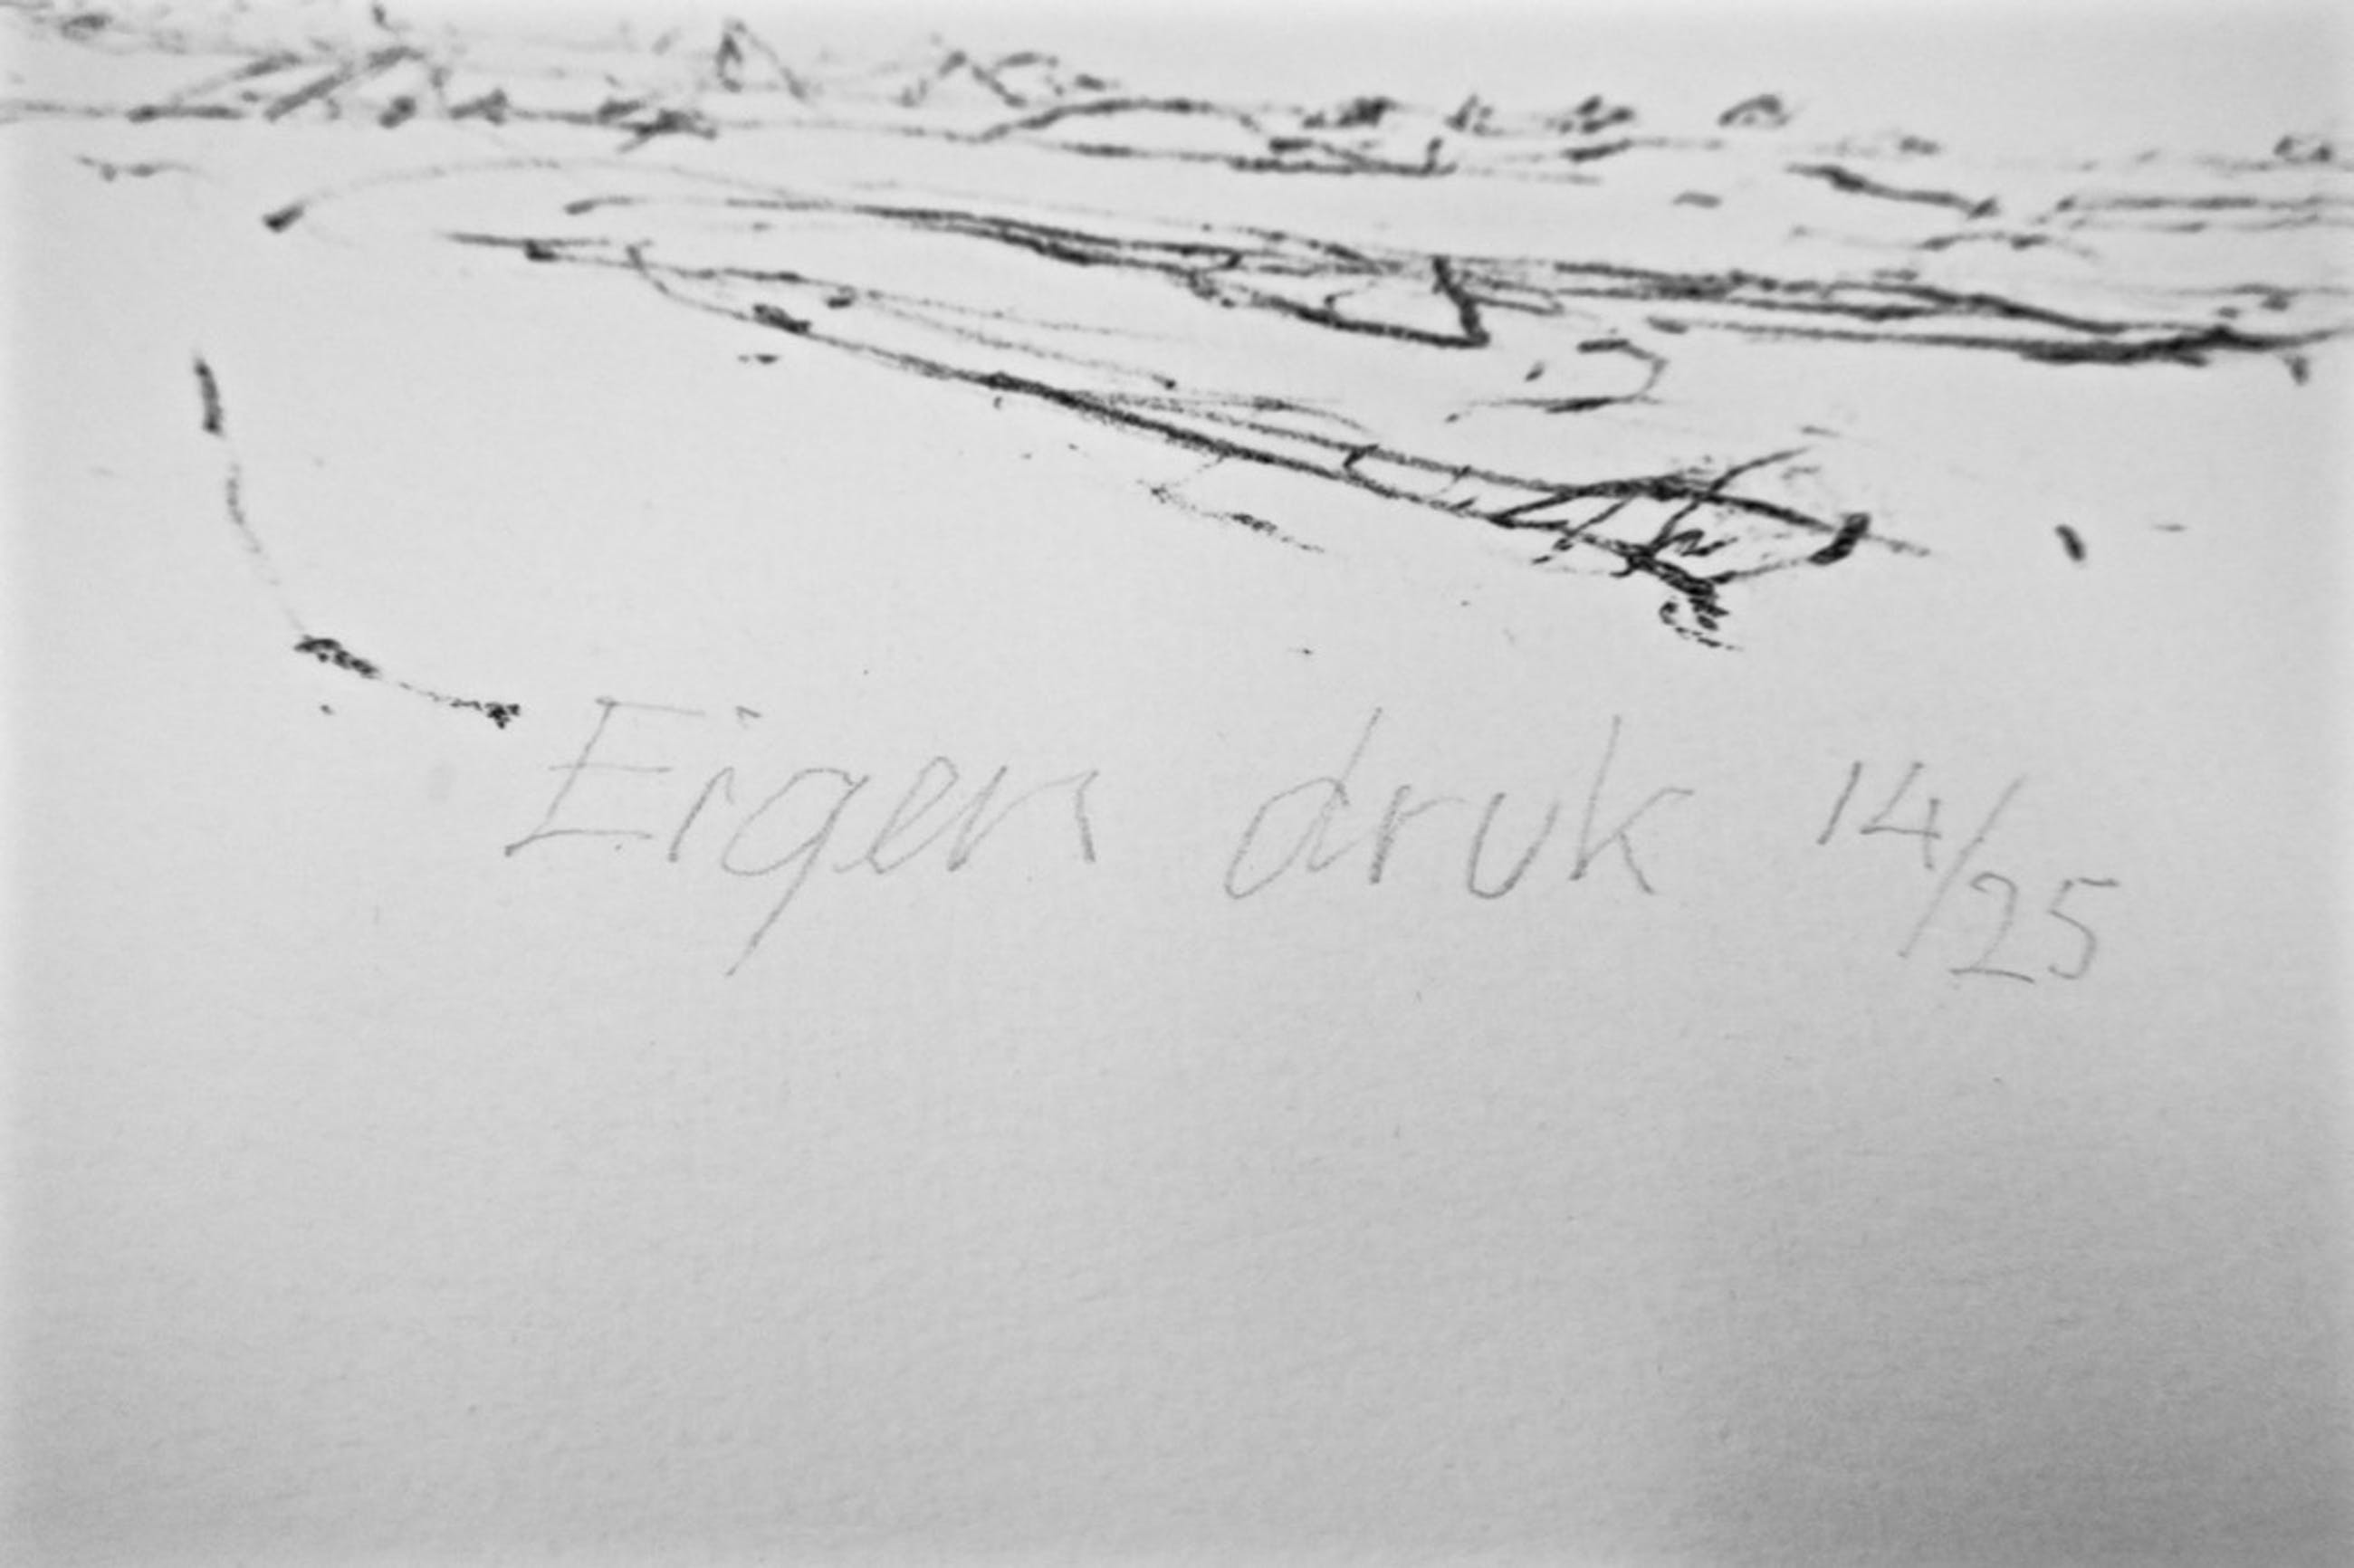 Eigen druk 14/25